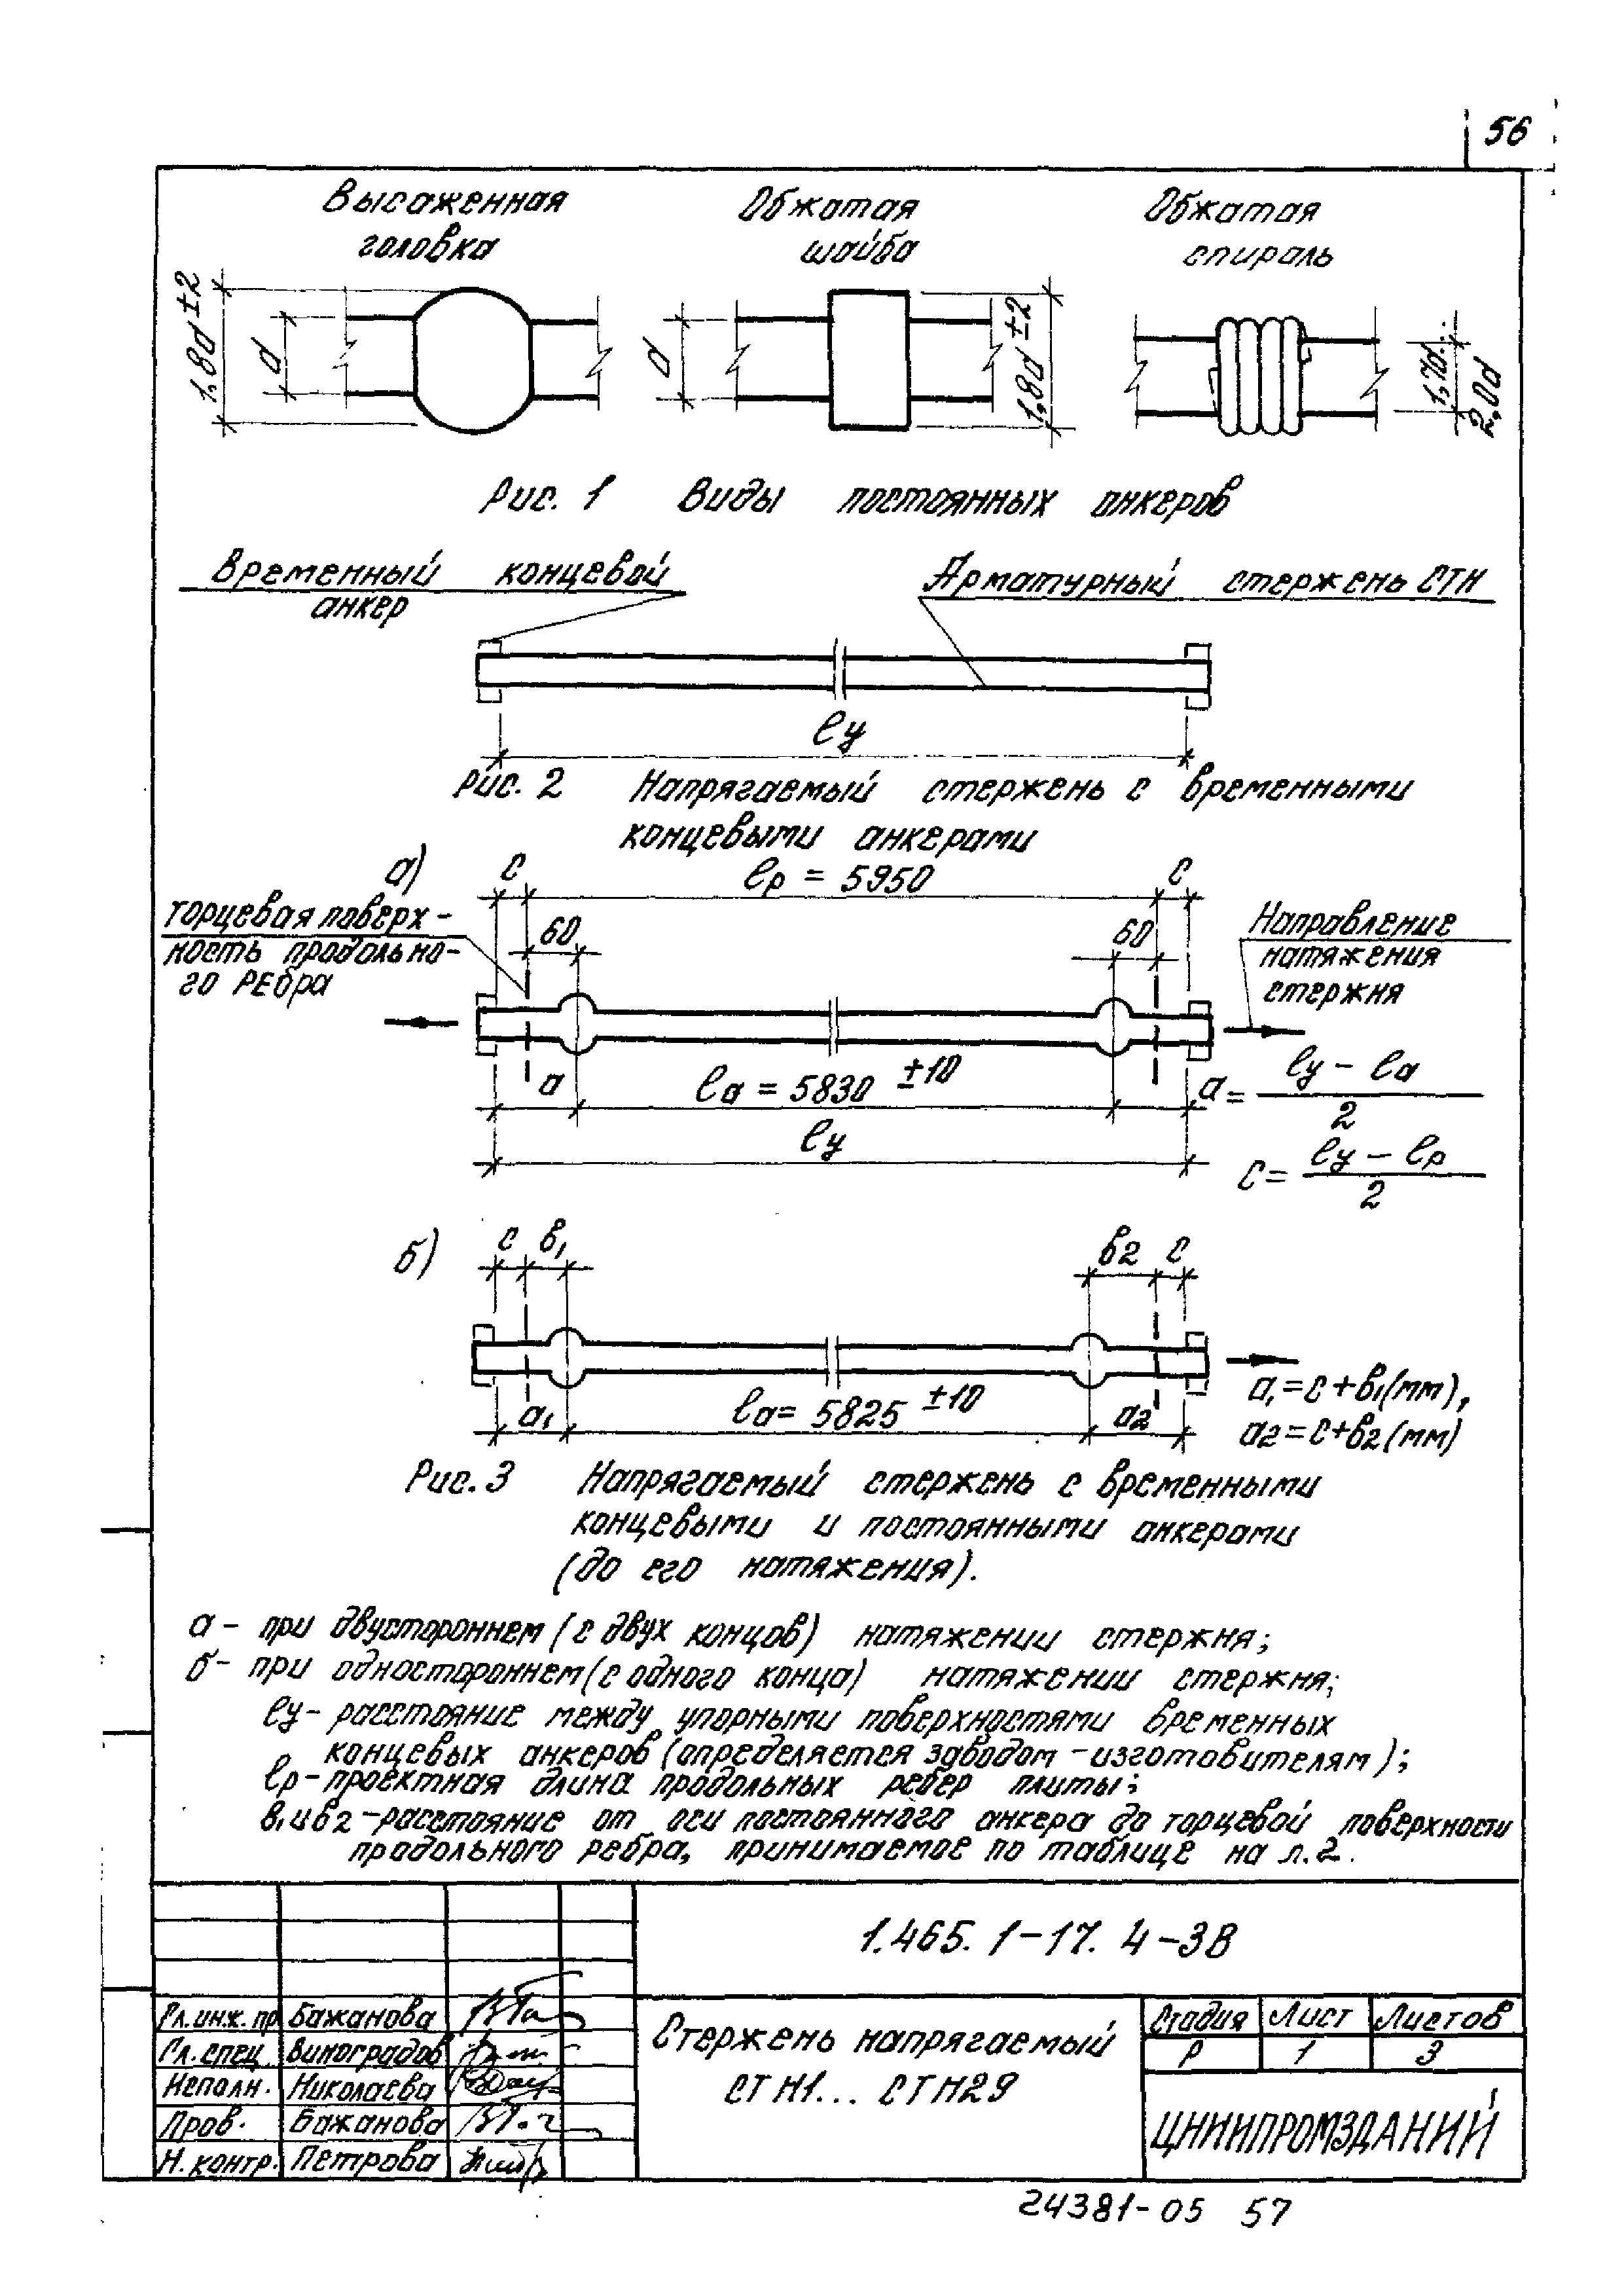 56
Высаженная
головка
Обжатая
шайба
Обжатая
спираль
1,8d±2
d
d
1,8d±2
1,7d...
2,0d
Рис. 1 Виды постоянных анкеров
Временный концевой
анкер
Арматурный стержень СТН
ℓу
Рис. 2 Напрягаемый стержень с временными
концевыми анкерами
а)
с
ℓр = 5950
с
торцевая поверх-
ность продольно-
го ребра
60
60
Направление
натяжения
стержня
а
ℓа = 5830 ±10
а = (ℓу - ℓа)/2
ℓу
с = (ℓу - ℓр)/2
б)
с
в1
в2
с
а1
ℓа = 5825 ±10
а2
а1=с+в1(мм),
а2=с+в2(мм)
Рис. 3 Напрягаемый стержень с временными
концевыми и постоянными анкерами
(до его натяжения).
а - при двустороннем (с двух концов) натяжении стержня;
б - при одностороннем (с одного конца) натяжении стержня;
ℓу - расстояние между упорными поверхностями временных
концевых анкеров (определяется заводом-изготовителям);
ℓр - проектная длина продольных ребер плиты;
в1 и в2 - расстояние от оси постоянного анкера до торцевой поверхности
продольного ребра, принимаемое по таблице на л.2.
1.465.1-17.4-3В
Гл.инж.пр Бажанова
Гл.спец. Виноградов
Исполн. Николаева
Пров. Бажанова
Н. контр. Петрова
Стержень напрягаемый
СТН1... СТН29
Стадия Лист Листов
Р 1 3
ЦНИИПРОМЗДАНИЙ
24381-05 57